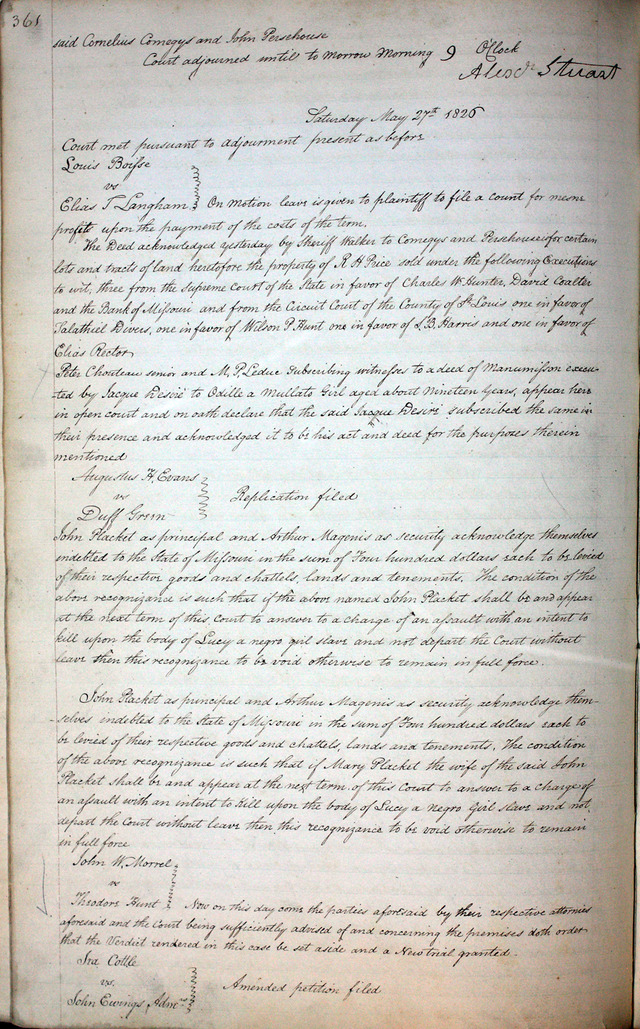 361
said Cornelius Comegys and John Persehouse
Court adjourned until to morrow Morning 9 O'Clock
Alexdr Stuart
Saturday May 27th 1826
Court met pursuant to adjourment present as before
Louis Boisse
vs
Elias T Langham On Motion leave is given to plaintiff to file a count for mesne
profits upon the payment of the costs of the term.
The Deed acknowledged yesterday by Sheriff Walker to Comegys and Persehouse is for certain
lots and tracts of land heretofore the property of R H Price sold under the following Executions
to wit, three from the supreme court of the State in favor of Charles W. Hunter, David Coalter
and the Bank of Missouri and from the Circuit Court of the County of St Louis one in favor of
Salathiel Divers, one in favor of Wilson P. Hunt one in favor of S. B. Harris and one in favor of
Elias Rector
Peter Chouteau senior and M. P. Leduc Subscribing witnesses to a deed of Manumisson execu-
ted by Jacque Desiré to Odille a Mullato Girl aged about Nineteen Years, appear here
in open court and on oath declare that the said Jacque Desiré subscribed the same in
their presence and acknowledged it to be his act and deed for the purposes therein
mentioned
Augustus H. Evans
vs
Duff Green
Replication filed
John Placket as principal and Arthur Magenis as security acknowledge themselves
indebted to the State of Missouri in the sum of Four hundred dollars each to be levied
of their respective goods and chattels, lands and tenements. The condition of the
above recognizance is such that if the above named John Placket shall be and appear
at the next term of this Court to answer to a charge of an assault with an intent to
kill upon the body of Lucy a negro girl slave and not depart the Court without
leave then this recognizance to be void otherwise to remain in full force.
John Placket as principal and Arthur Magenis as security acknowledge them-
selves indebted to the State of Missouri in the sum of Four hundred dollars each to
be levied of their respective goods and chattels, lands and tenements. The condition
of the above recognizance is such that if Mary Placket the wife of the said John
Placket shall be and appear at the next term of this Court to answer to a Charge of
an assault with an intent to kill upon the body of Lucy a Negro Girl slave and not
depart the Court without leave then this recognizance to be void otherwise to remain
in full force
John W. Morrel
vs
Theodore Hunt Now on this day come the parties aforesaid by their respective attornies
aforesaid and the Court being sufficiently advised of and concerning the premises doth order
that the Verdict rendered in this case be set aside and a New trial granted.
Ira Cottle
vs.
John Ewings Admr
Amended petition filed